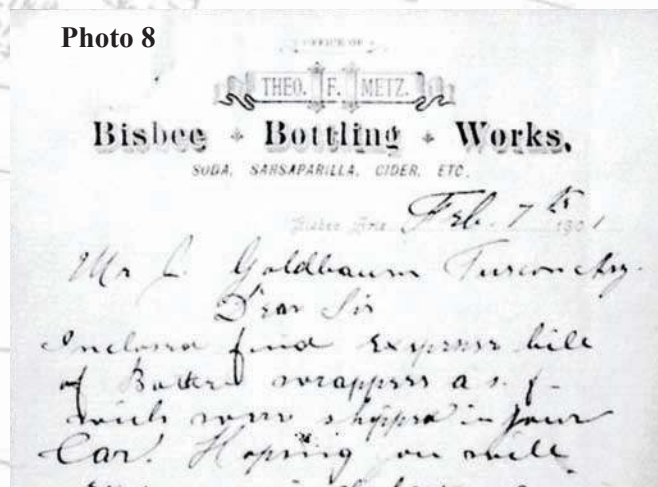 Photo 8
OFFICE OF
THEO. F. METZ.
Bisbee Bottling Works.
SODA, SARSAPARILLA, CIDER, ETC.
Bisbee, Ariz. Feb. 7th 1901
Mr L. Goldbaum Turson Arz.
Dear Sir
Inclosed find Express bill
of wrappers
wich were shipped in your
Car. Hoping you will